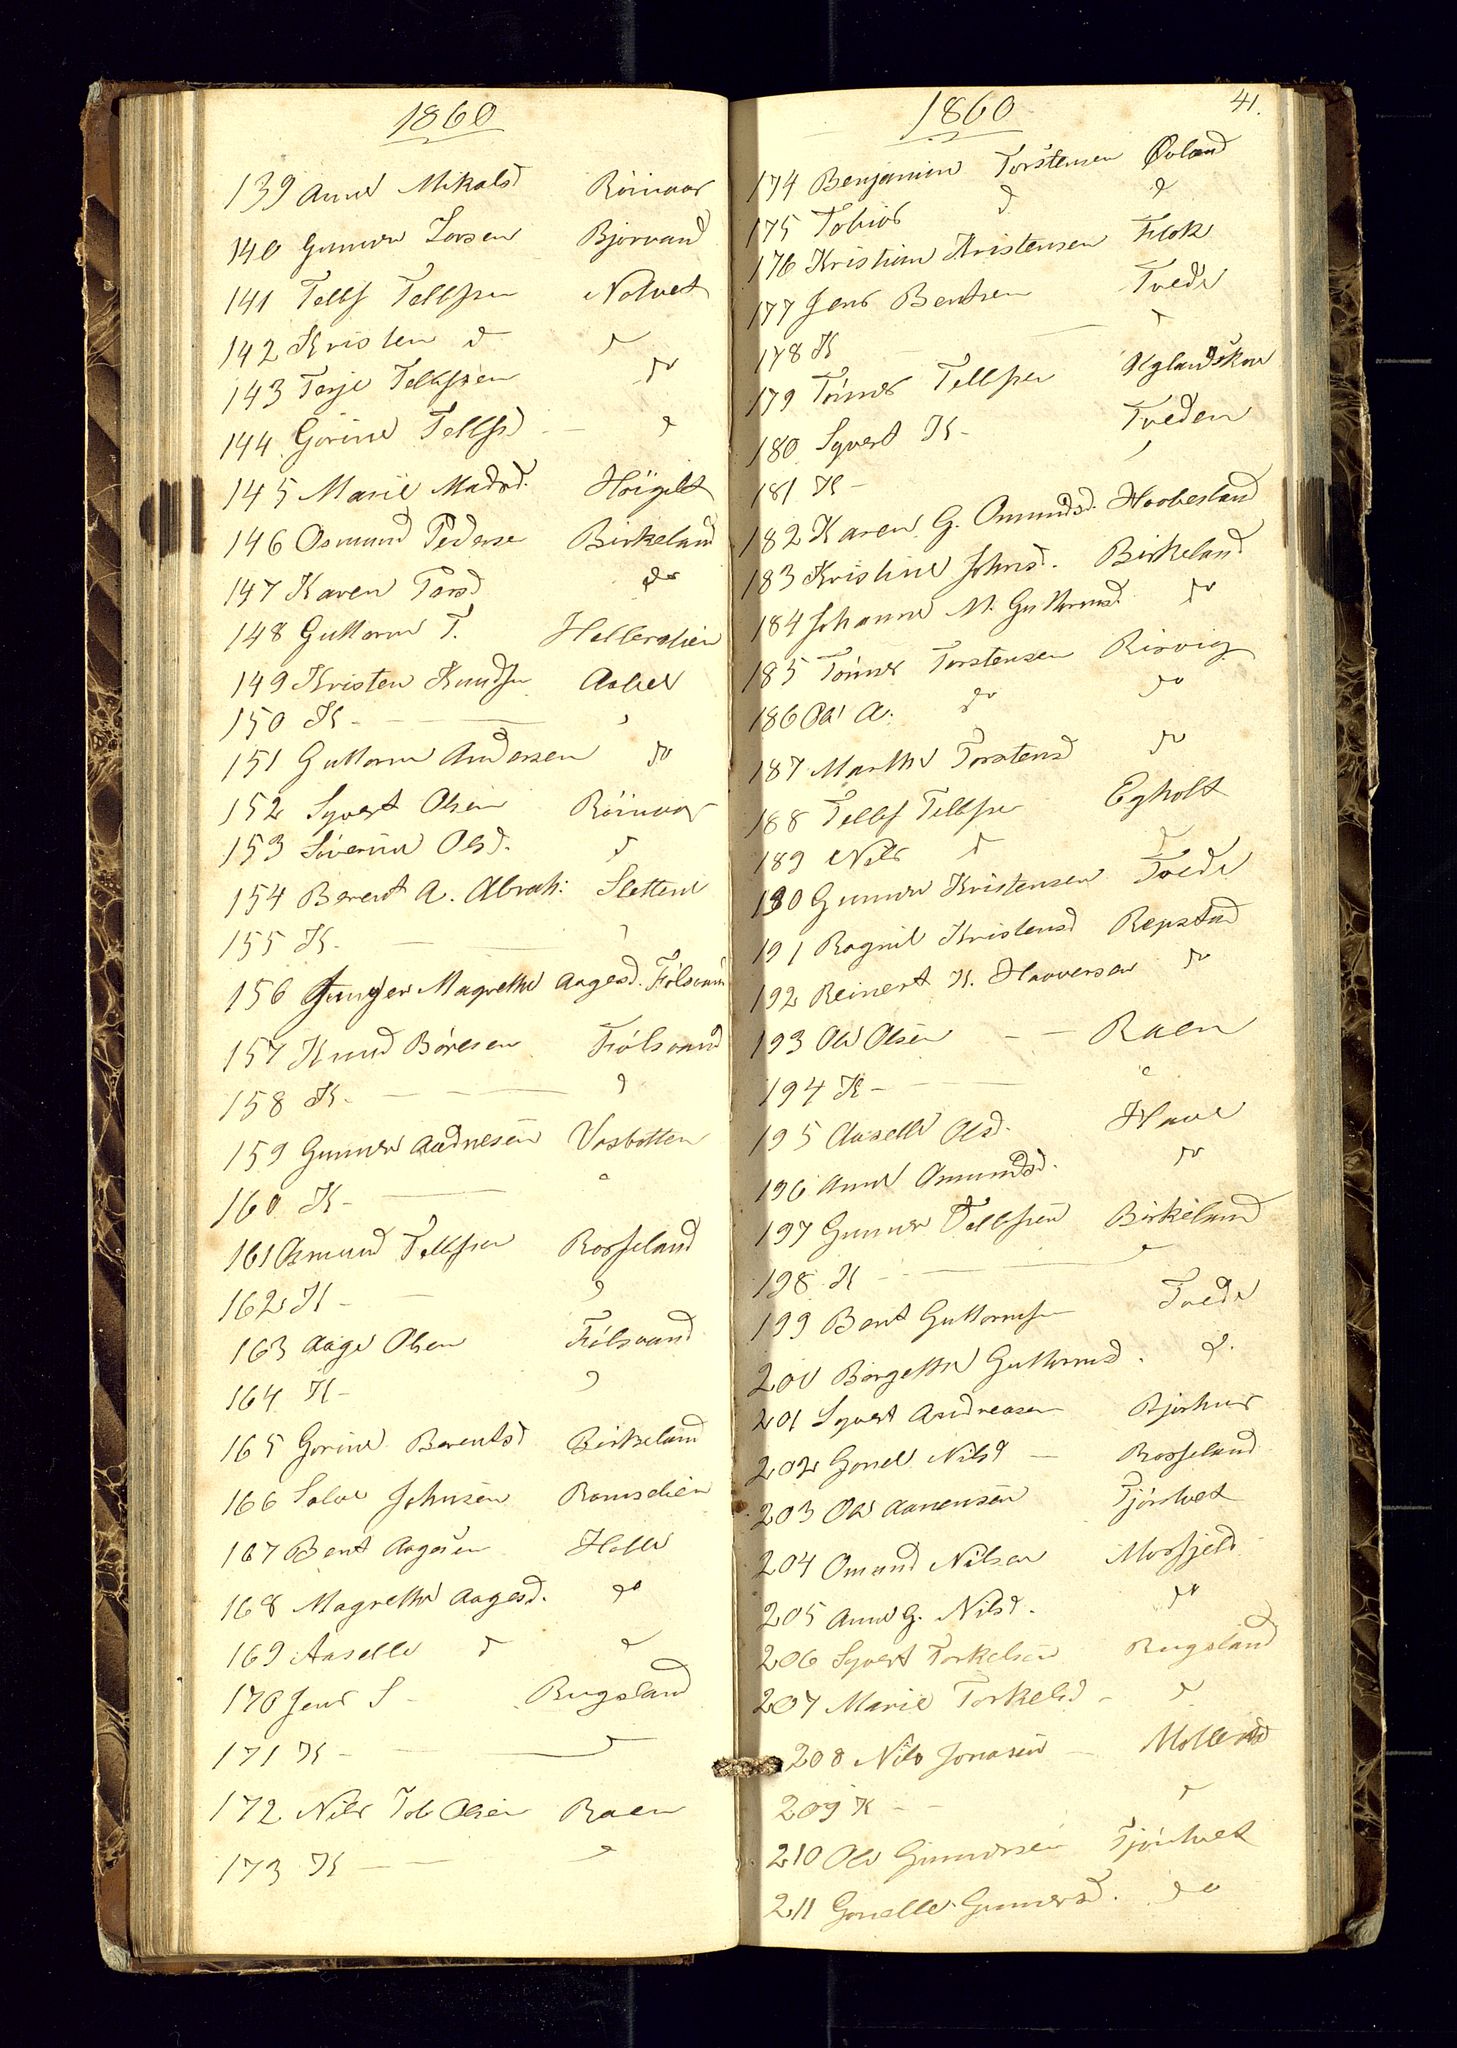 1860
139 Anne Mikalsd Röinaas
140 Gunner Larsen Bjorvand
141 Tellf Tellfsen Nolvet
142 Kristen d d
143 Terje Tellfsen do
144 Gorine Tellfsd - d
145 Marie Madsd. Höigilt
146 Osmund Pederse Birkeland
147 Karen Tarsd do
148 Guttorm T. Hellerslien
149 Kristen Knudsen Aabel
150 K - - "
151 Guttorm Andersen do
152 Syvert Olsen Röinaas
153 Siverine Olsd. d
154 Berent A. Abrah: Slettene
155 K. - - "
156 Magrethe Aagesd. Fölsvan
157 Knud Börresen Fölsvand
158 K. - - "
159 Gunner Aadnesen Vasbotten
160 K - "
161 Asmund Tellfsen Rosseland
162 K - - "
163 Aage Olsen Fölsvand
164 K - "
165 Gorine Berentsd Birkeland
166 Salve Johnsen Ramselien
167 Bent Aagesen Halle
168 Magrethe Aagesd. do
169 Aaselle d d
170 Jens S - Rugsland
171 K - - "
172 Nils Tob Olsen Raen
173 K - - "
1860 41.
174 Benjamin Torstensen Øvland
175 Tobias d d
176 Kristian Kristensen Flak
177 Jens Bentsen Tvede
178 K - "
179 Tönnes Tellfsen Uglandskow
180 Syvert K - Tveden
181 K - "
182 Karen G. Omundsd. Haabesland
183 Kristine Johnsd. Birkeland
184 Johanne M. Guttormsd. do
185 Tönnes Torstensen Risvig
186 Ole A. do do
187 Marthe Torstensd do
188 Tellf Tellfsen Egholt
189 Nils d d
190 Gunner Kristensen Tvede
191 Ragnil Kristensd Repstad
192 Reinert K. Haaversen do
193 Ole Olsen - Raen
194 K - - "
195 Aaselle Olsd. Have
196 Anne Omundsd. do
197 Gunner Tellfsen Birkeland
198 K - - "
199 Bent Guttormsen Tvede
200 Börgethe Guttormsd. d.
201 Syvert Andreasen Bjorhus
202 Gonel Nilsd - Rosseland
203 Ole Aanensen Tjönhvet
204 Omund Nilsen Mosfjeld
205 Anne G. Nilsd. do
206 Syvert Torkelsen Rugsland
207 Marie Torkelsd - "
208 Nils Jonasen - Molland
209 K - - "
210 Ole Gunnersen Tjönhvet
211 Gonelle Gunnersd. do